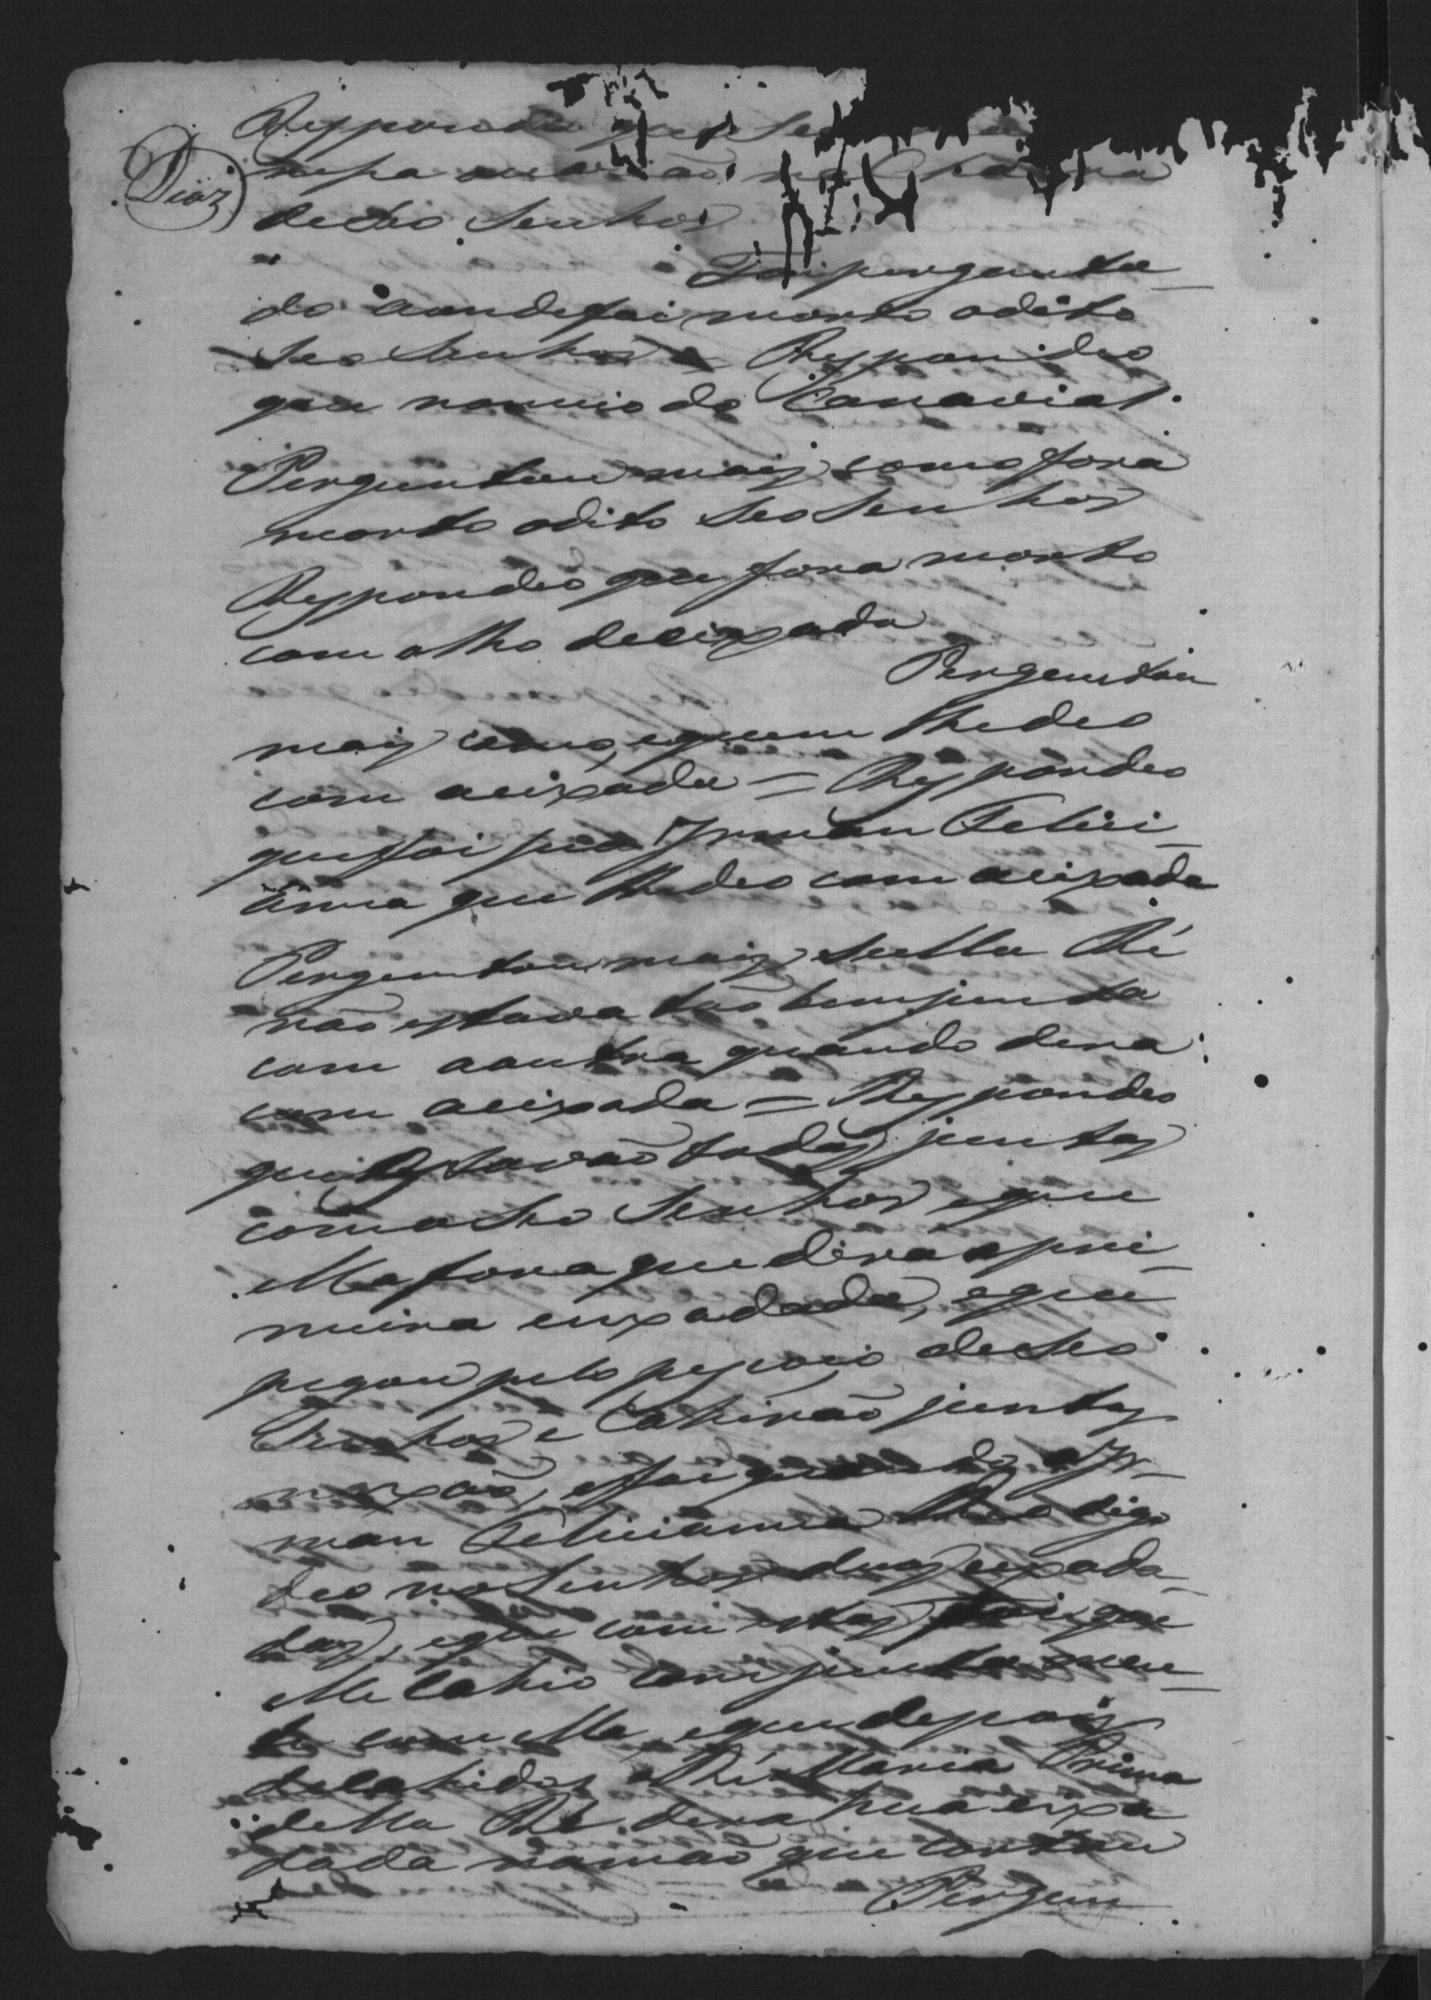 Dias
Respondeo que se
de seo Senhor
Foi pergunta-
do aonde foi morto odito
seo Senhor = Respondeo
que nomeio do Canavial.
Perguntou mais como fora
morto odito seo Senhor
Respondeo que fora morto
com olho deeixada
Perguntou
mais como, equem lhedeo
com aeixada = Respondeo
quefoi sua Irman Felici-
anna que lhedeo com aeixada
Perguntou mais seella Ré
não estava tãobem junta
com aoutra quando dera
com aeixada = Respondeo
que estavão todas juntas
com oseo Senhor, eque
ella fora que dera apri-
meira enxadada, eque
pegou pelo pescoço deseo
Senhor e Cahirão juntos
nochão, efoi quando a Ir-
man Felicianna lhe digo
deo no Senhor duas eixada-
das, eque com estas foi que
elle cahio conjuntamen-
te com ella, eque depois
decahidos a Ré Maria Prima
della Ré dera hua eixa
dada namão que cortou
Pergun